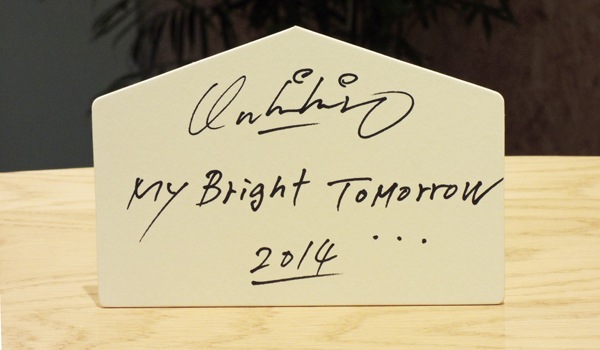 My Bright Tomorrow
...
2014